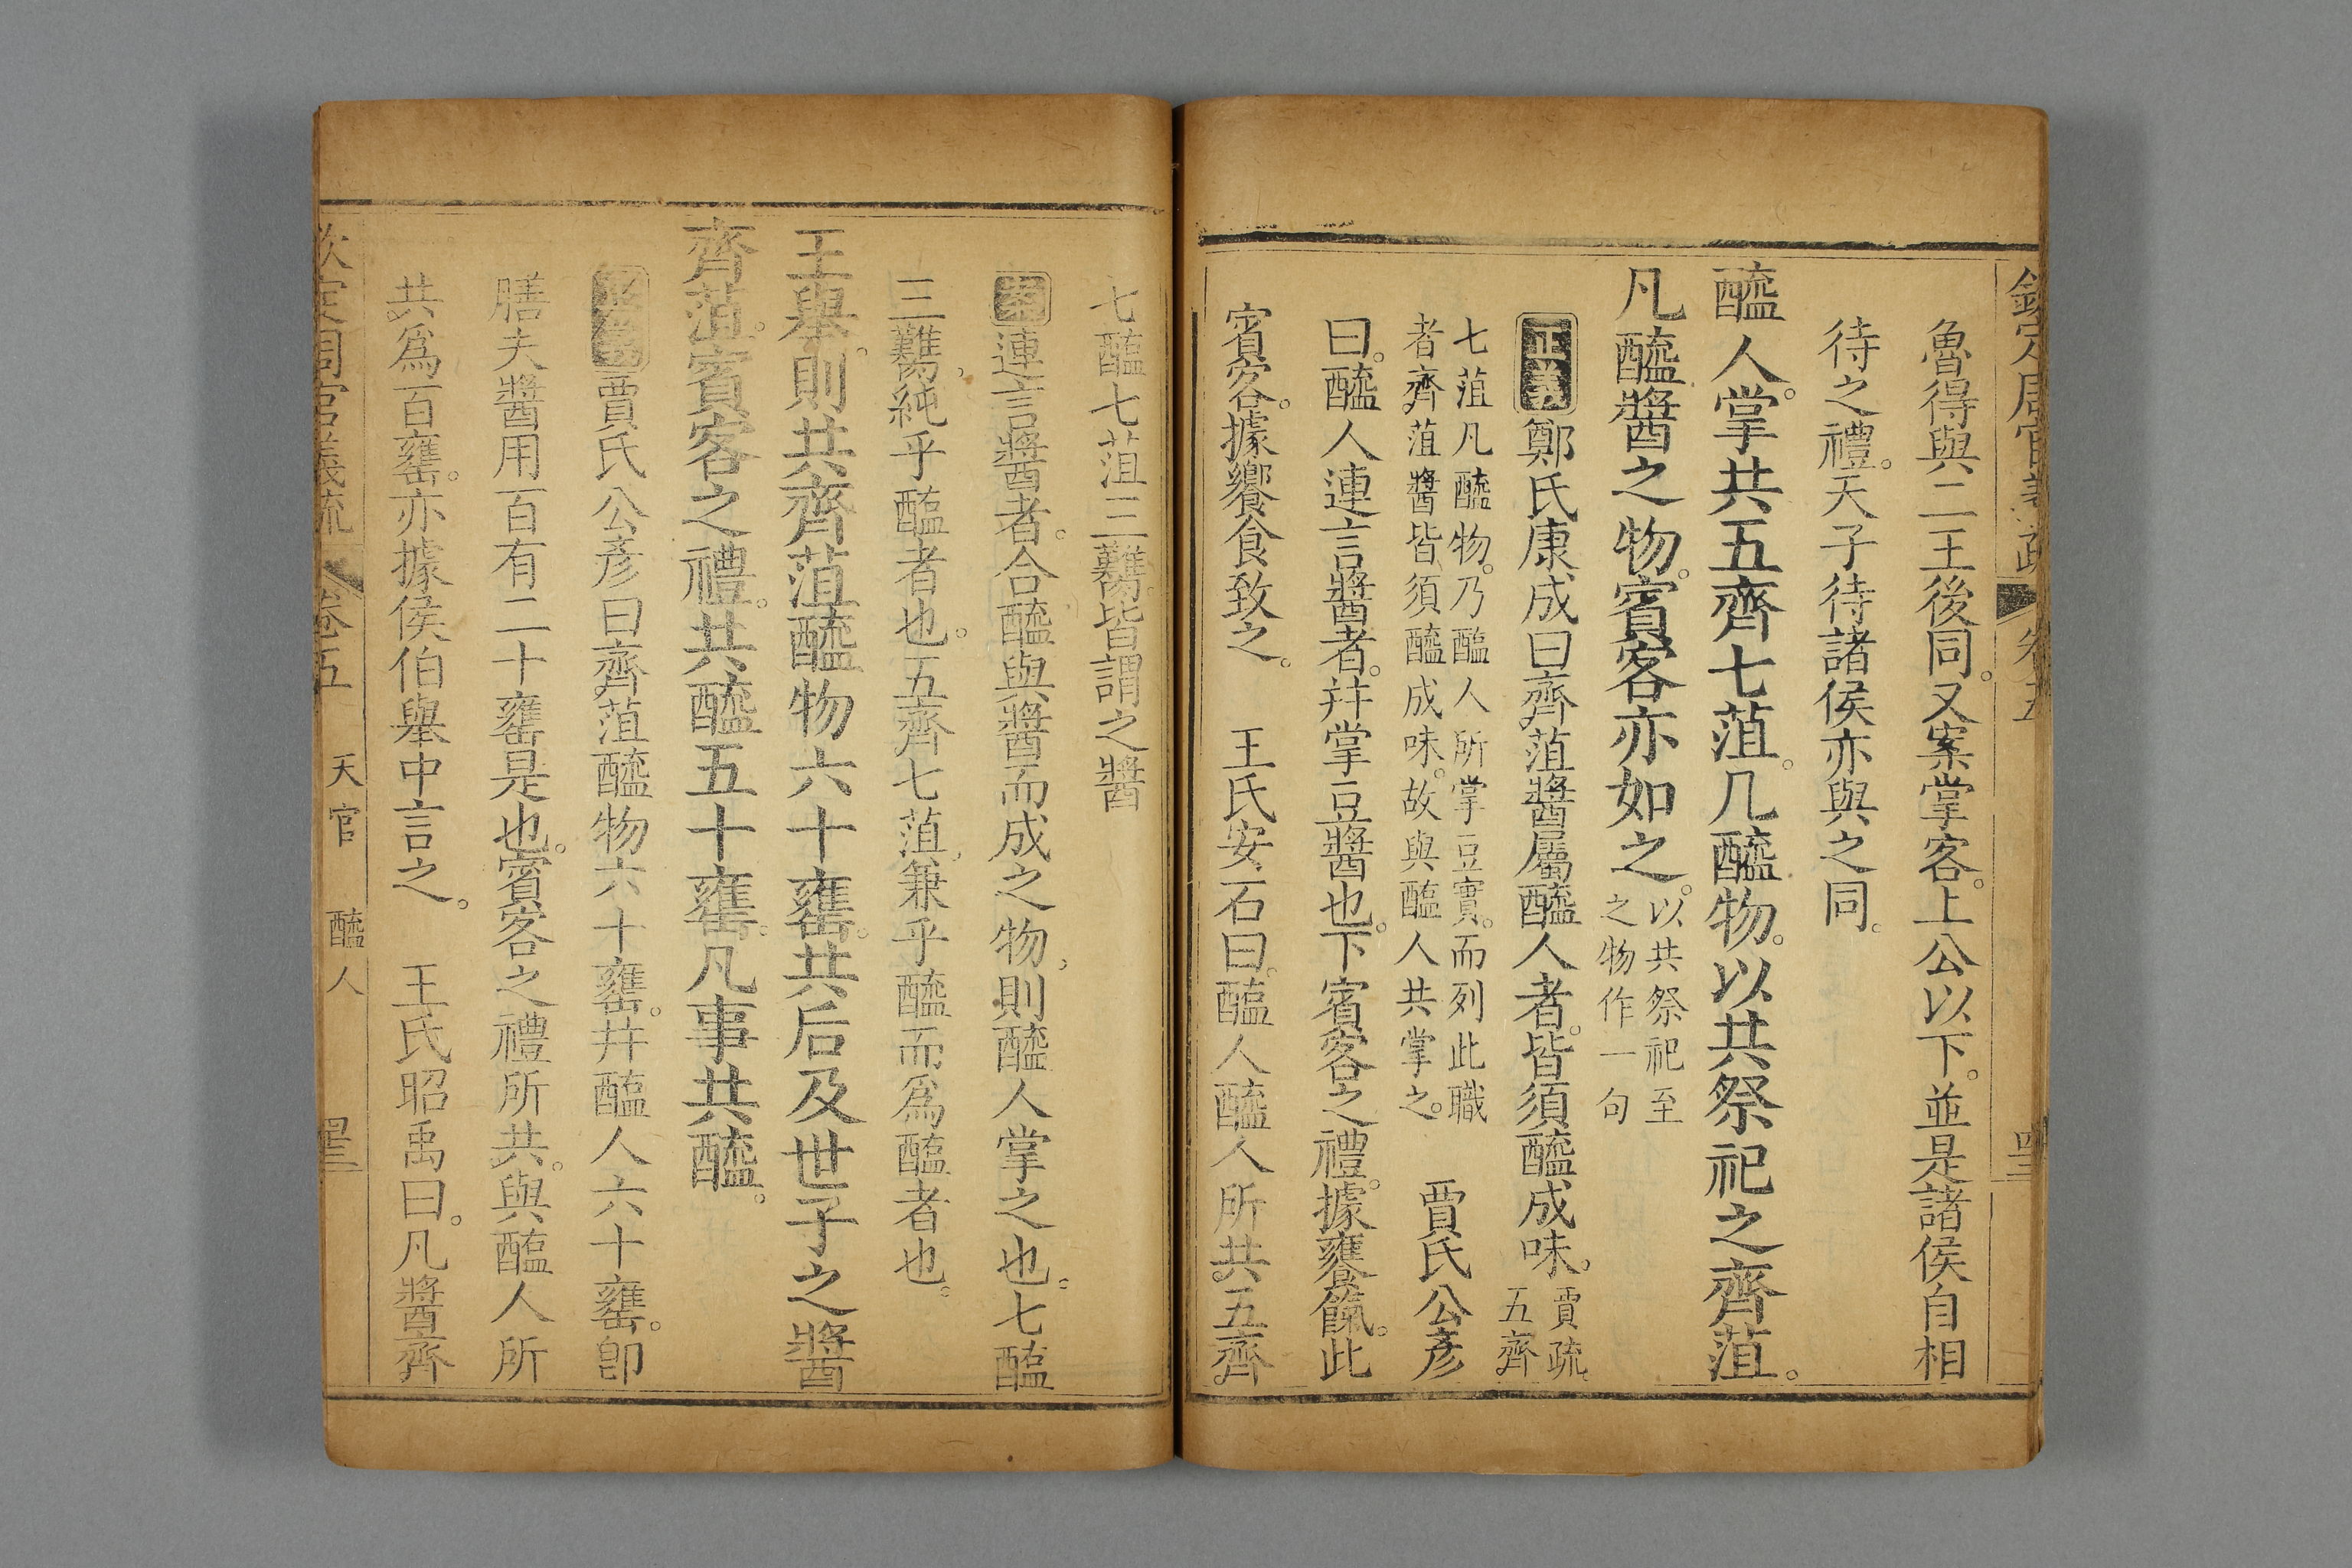 欽定周官義疏 卷五 四三
魯得與二王後同。又案掌客。上公以下。並是諸侯自相
待之禮。天子待諸侯亦與之同。
醯人。掌共五齊七菹。凡醯物。以共祭祀之齊菹。
凡醯醬之物。賓客亦如之。以共祭祀至
之物作一句
正義鄭氏康成曰齊菹醬屬醯人者。皆須醯成味。賈疏。
五齊
七菹凡醯物。乃醯人所掌豆實。而列此職
者齊菹醬皆須醯成味。故與醢人共掌之。 賈氏公彥
曰。醯人連言醬者。幷掌豆醬也。下賓客之禮。據饔餼。此
賓客。據饗食致之。 王氏安石曰。醢人醯人所共五齊
七醢七菹三臡。皆謂之醬
案連言醬者。合醯與醬而成之物。則醯人掌之也。七醢
三臡。純乎醢者也。五齊七菹。兼乎醯而爲醢者也。
王舉。則共齊菹醯物六十罋。共后及世子之醬
齊菹。賓客之禮。共醯五十罋。凡事共醯。
正義賈氏公彥曰齊菹醯物六十罋。幷醢人六十罋。卽
膳夫醬用百有二十罋是也。賓客之禮所共。與醢人所
共爲百罋。亦據侯伯舉中言之。 王氏昭禹曰。凡醬齊
欽定周官義疏 卷五 天官 醯人 四三